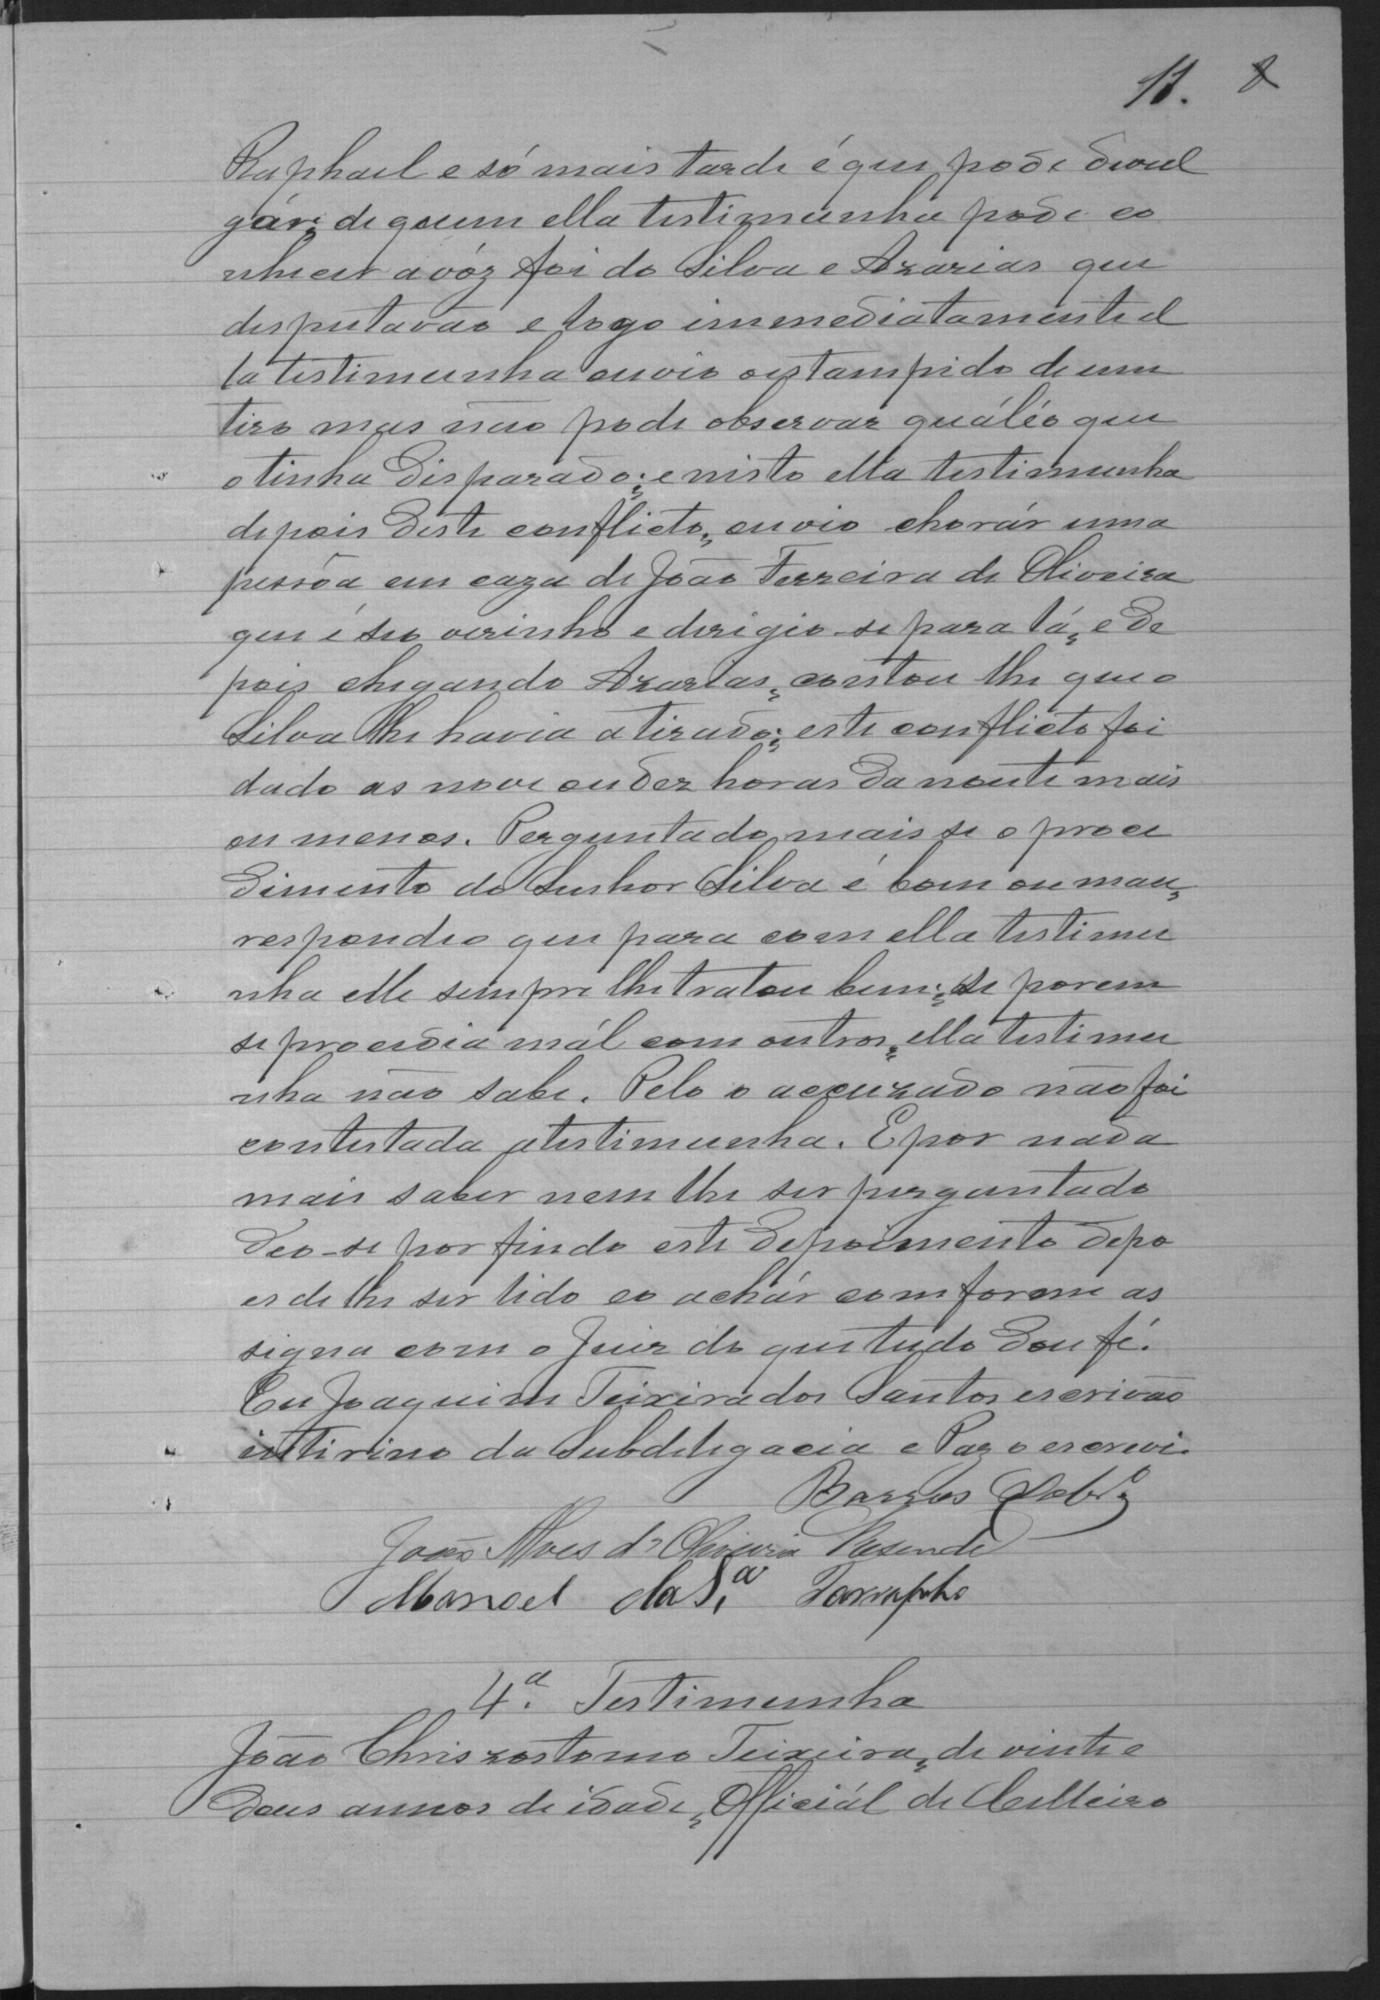 11. 8
Raphael e só mais tarde é que pode devul
gár: de quem ella testimunha pode co
nhecer a vóz foi do Silva e Azarias que
desputavão e logo immediatamente el
la testimunha ouvio o estampido de um
tiro mas não pode observar quál é o que
o tinha disparado; e nisto ella testimunha
depois deste conflicto, ouvio chorár uma
pessôa em caza de João Ferreira de Oliveira
que é seu vezinho e derigio-se para lá, e de
pois chegando Azarias, contou lhe que o
Silva lhe havia atirado; este conflicto foi
dado as nove ou dez horas da noute mais
ou menos. Perguntado mais se o proce
dimento do Senhor Silva é bom ou mau,
respondeo que para com ella testimu
nha elle sempre lhe tratou bem; se porem
se procedia mál com outros, ella testimu
nha não sabe. Pelo o accuzado não foi
contestada a testimunha. E por nada
mais saber nem lhe ser perguntado
deo-se por findo este depoimento depo
es de lhe ser lido e o achár comforme as
signa com o Juiz do que tudo dou fé.
Eu Joaquim Teixeira dos Santos escrivão
intirino da Subdelegacia e Paz o escrevi.
Barros Sobr.º
João Alves d' Oliveira Resende
Manoel da S.ª
4.ª Testimunha
João Chrizostomo Teixeira, de vinte e
dous annos de idade, Official de Selleiro